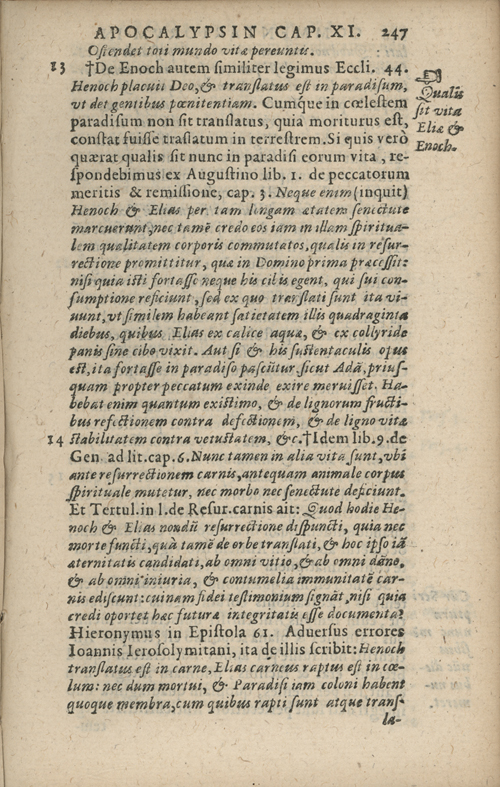 APOCALYPSIN CAP. XI. 247
Ostendet toti mundo vitæ pereuntis.
13 †De Enoch autem similiter legimus Eccli. 44.
Henoch placuit Deo, & translatus est in paradisum,
vt det gentibus pœnitentiam. Cumque in cœlestem
paradisum non sit translatus, quia moriturus est,
constat fuisse traslatum in terrestrem. Si quis verò
quærat qualis sit nunc in paradisi eorum vita, re-
spondebimus ex Augustino lib. 1. de peccatorum
meritis & remissione, cap. 3. Neque enim (inquit)
Henoch & Elias per tam longam ætatem senectute
marcuerunt, nec tamē credo eos iam in illam spiritua-
lem qualitatem corporis commutatos, qualis in resur-
rectione promittitur, quæ in Domino prima præcessit:
nisi quia isti fortasse neque his cibis egent, qui sui con-
sumptione reficiunt, sed ex quo translati sunt ita vi-
uunt, vt similem habeant satietatem illis quadraginta
diebus, quibus Elias ex calice aquæ, & ex collyride
panis sine cibo vixit. Aut si & his sustentaculis opus
est, ita fortasse in paradiso pascūtur sicut Adā, prius-
quam propter peccatum exinde exire meruisset. Ha-
bebat enim quantum existimo, & de lignorum fructi-
bus refectionem contra defectionem, & de ligno vitæ
14 stabilitatem contra vetustatem, &c. †Idem lib. 9. de
Gen. ad lit. cap. 6. Nunc tamen in alia vita sunt, vbi
ante resurrectionem carnis, antequam animale corpus
spirituale mutetur, nec morbo nec senectute deficiunt.
Et Tertul. in l. de Resur. carnis ait: Quod hodie He-
noch & Elias nondū resurrectione dispuncti, quia nec
morte functi, quà tamē de orbe translati, & hoc ipso iā
æternitatis candidati, ab omni vitio, & ab omni dāno,
& ab omni iniuria, & contumelia immunitatē car-
nis ediscunt: cuinam fidei testimonium signāt, nisi quia
credi oportet hæc futuræ integritatis esse documenta?
Hieronymus in Epistola 61. Aduersus errores
Ioannis Ierosolymitani, ita de illis scribit: Henoch
translatus est in carne, Elias carneus raptus est in cœ-
lum: nec dum mortui, & Paradisi iam coloni habent
quoque membra, cum quibus rapti sunt atque trans-
la-
Qualis
sit vita
Eliæ &
Enoch.